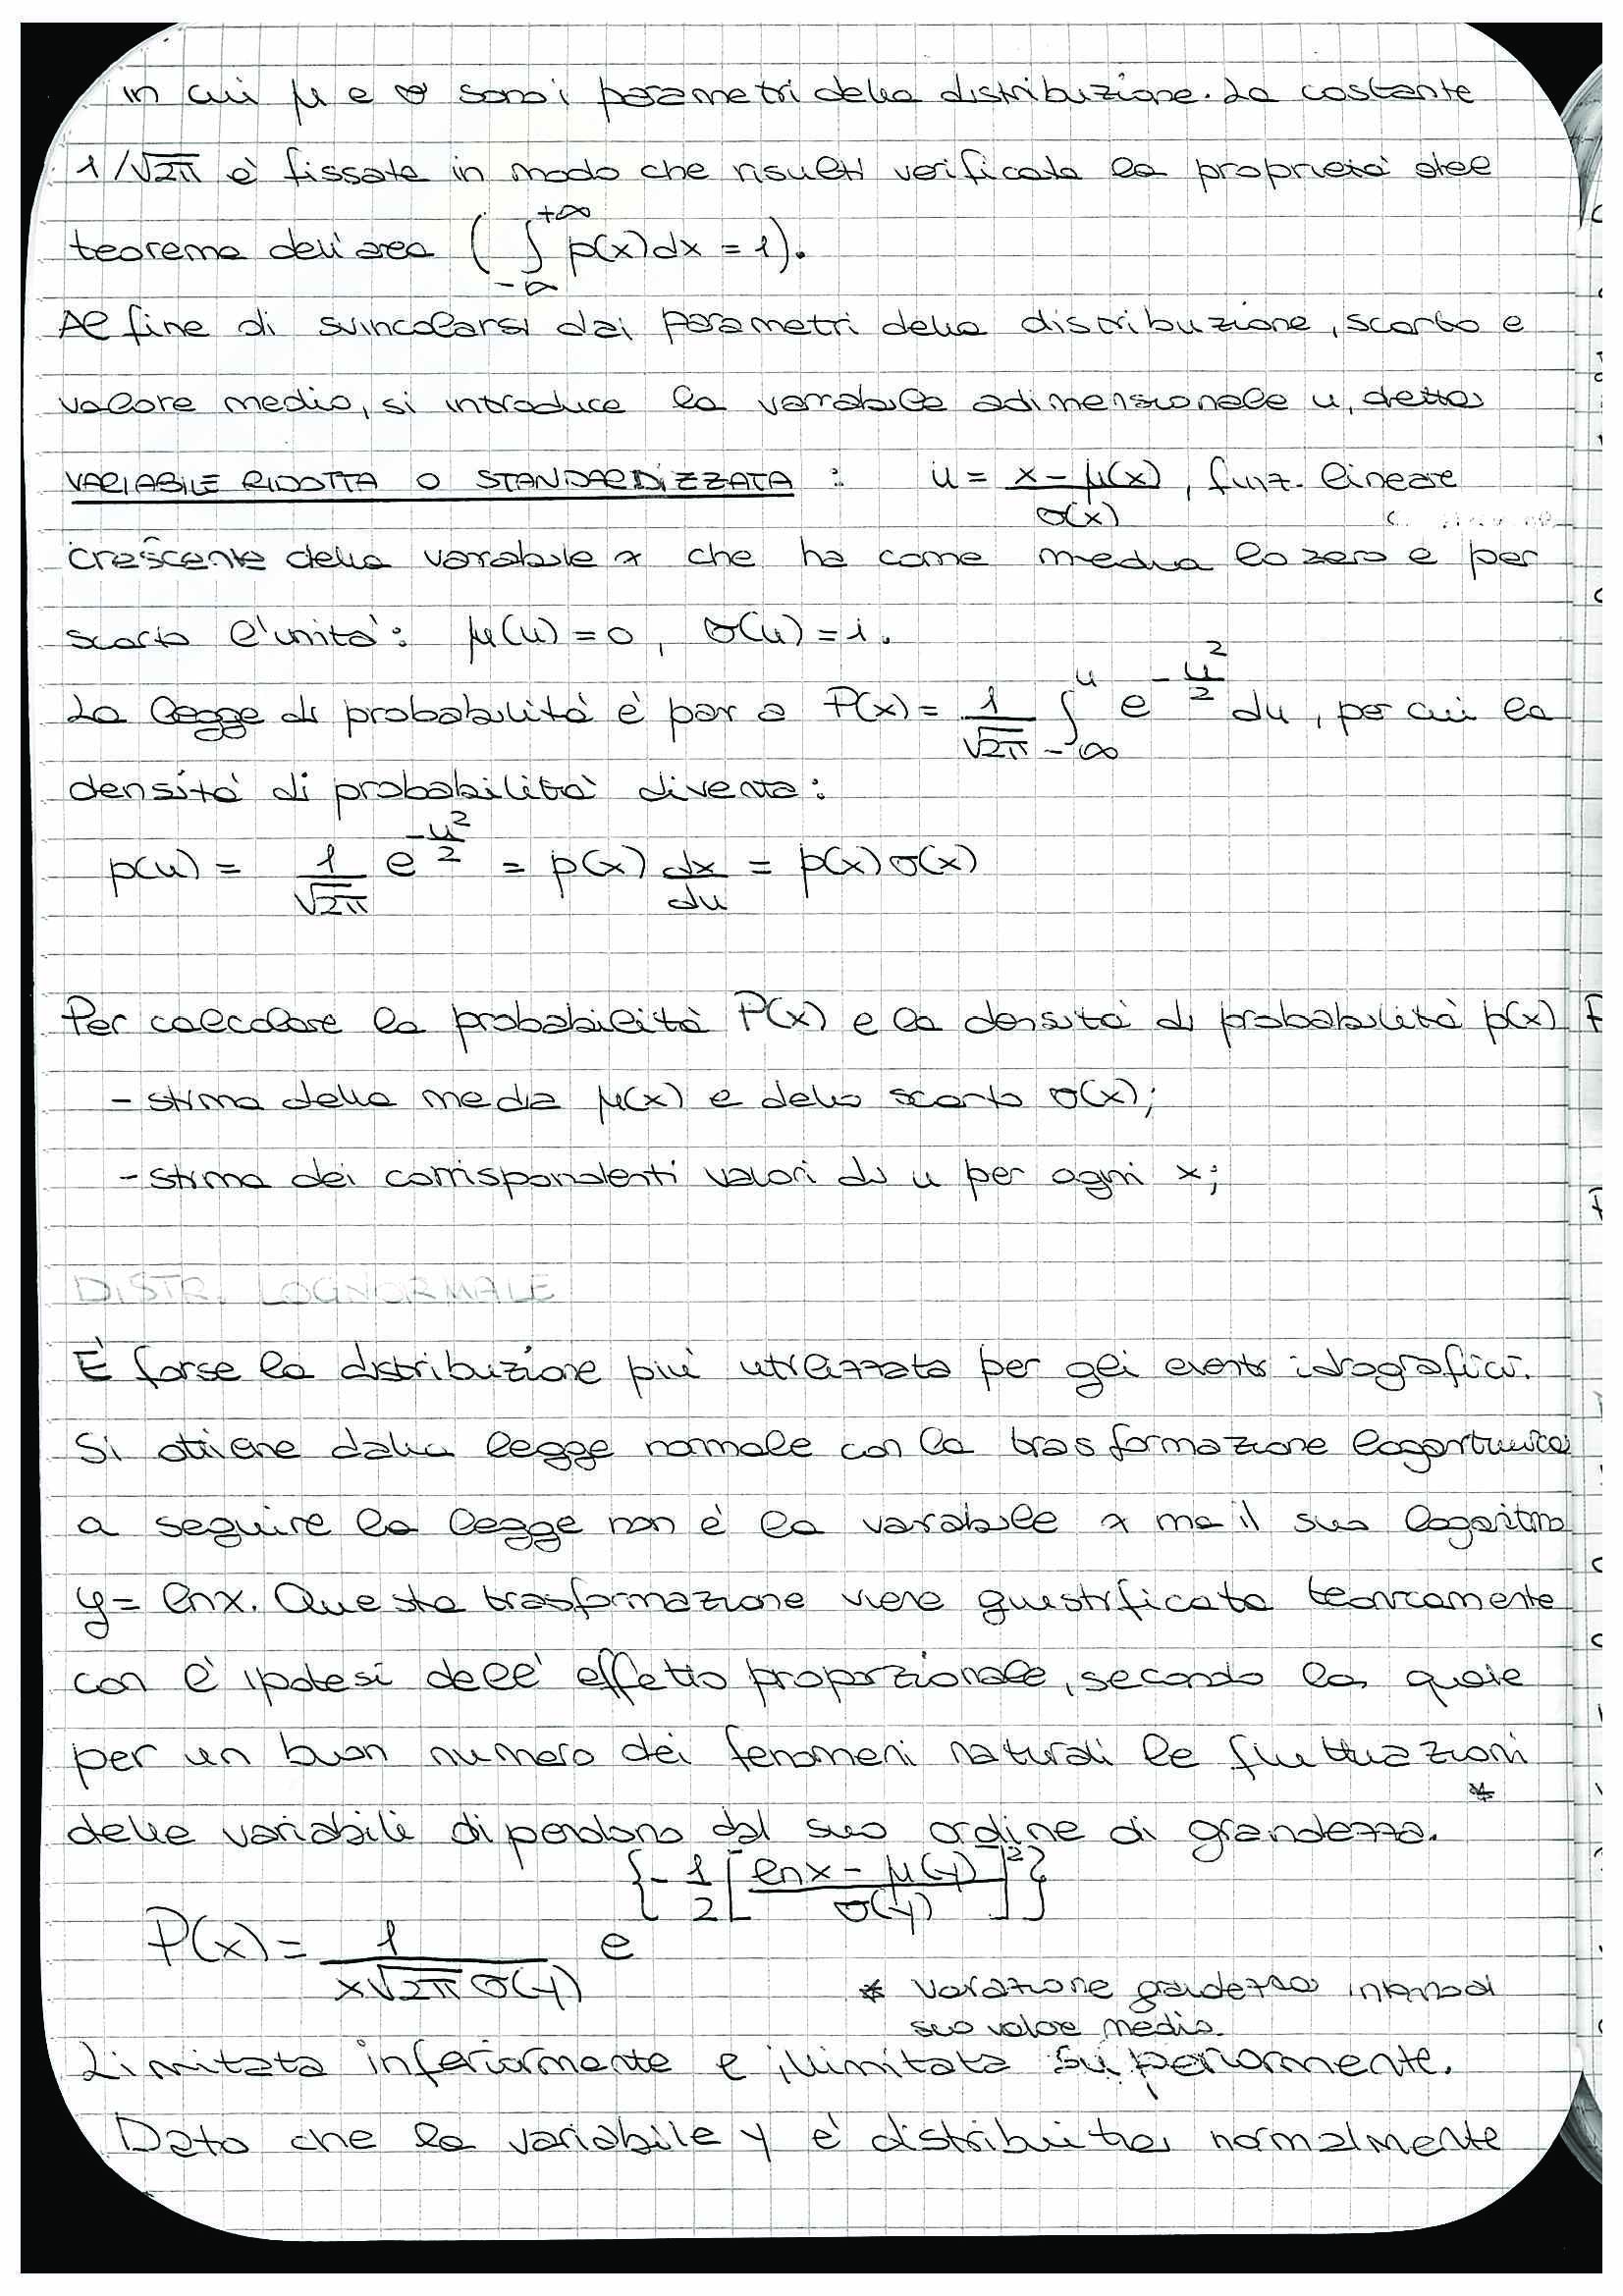 in cui μ e σ sono i parametri della distribuzione. La costante
1/√2π è fissata in modo che risulti verificata la proprietà del
teorema dell'area (∫_{-∞}^{+∞} p(x)dx = 1).
Al fine di svincolarsi dai parametri della distribuzione, scarto e
valore medio, si introduce la variabile adimensionale u, detta
VARIABILE RIDOTTA O STANDARDIZZATA : u = (x-μ(x))/σ(x), funz. lineare
crescente della variabile x che ha come media lo zero e per
scarto l'unità: μ(u)=0, σ(u)=1.
La legge di probabilità è pari a P(x) = 1/√2π ∫_{-∞}^{u} e^{-u²/2} du, per cui la
densità di probabilità diventa:
p(u) = 1/√2π e^{-u²/2} = p(x) dx/du = p(x) σ(x)
Per calcolare la probabilità P(x) e la densità di probabilità p(x)
- stima della media μ(x) e dello scarto σ(x);
- stima dei corrispondenti valori di u per ogni x;
DISTR. LOGNORMALE
È forse la distribuzione più utilizzata per gli eventi idrografici.
Si ottiene dalla legge normale con la trasformazione logaritmica
a seguire la legge non è la variabile x ma il suo logaritmo
y = lnx. Questa trasformazione viene giustificata teoricamente
con l'ipotesi dell'effetto proporzionale, secondo la quale
per un buon numero dei fenomeni naturali le fluttuazioni
delle variabili dipendono dal suo ordine di grandezza. *
P(x) = 1/(x√2π σ(y)) e^{-1/2[(lnx-μ(y))/σ(y)]²}
* variazione grandezza
suo valore medio.
Limitata inferiormente e illimitata superiormente.
Dato che la variabile y è distribuita normalmente